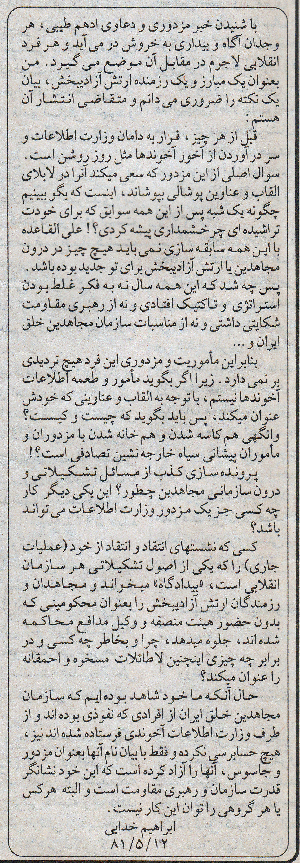 با شنیدن خبر مزدوری و دعاوی ادهم طیبی، هر
وجدان آگاه و بیداری به خروش در می آید و هر فرد
انقلابی لاجرم در مقابل آن موضع می گیرد. من
بعنوان یک مبارز و یک رزمنده ارتش آزادیبخش، بیان
یک نکته را ضروری می دانم و متقاضی انتشار آن
هستم:
قبل از هر چیز، فرار به دامان وزارت اطلاعات و
سر در آوردن از آخور آخوندها مثل روز روشن است.
سوال اصلی از این مزدور که سعی میکند آنرا در لابلای
القاب و عناوین پوشالی بپوشاند، اینست که بگو ببینیم
چگونه یک شبه پس از این همه سوابق که برای خودت
تراشیده ای چرخشمداری پیشه کردی؟! علی القاعده
با این همه سابقه سازی نمی باید هیچ چیز در درون
مجاهدین یا ارتش آزادیبخش برای تو جدید بوده باشد.
پس چه شد که این همه سال نه به فکر غلط بودن
استراتژی و تاکتیک افتادی و نه از رهبری مقاومت
شکایتی داشتی و نه از مناسبات سازمان مجاهدین خلق
ایران و ...
بنابراین مأموریت و مزدوری این فرد هیچ تردیدی
بر نمی دارد. زیرا اگر بگوید مأمور و طعمه اطلاعات
آخوندها نیستم، با توجه به القاب و عناوینی که خودش
عنوان میکند، پس باید بگوید که چیست و کیست؟
وانگهی هم کاسه شدن و هم خانه شدن با مزدوران و
ماموران پیشانی سیاه خارجه نشین تصادفی است؟!
پرونده سازی کذب از مسائل تشکیلاتی و
درون سازمانی مجاهدین چطور؟ این یکی دیگر کار
چه کسی جز یک مزدور وزارت اطلاعات می تواند
باشد؟
کسی که نشستهای انتقاد و انتقاد از خود (عملیات
جاری) را که یکی از اصول تشکیلاتی هر سازمان
انقلابی است، «بیدادگاه» میخواند و مجاهدان و
رزمندگان ارتش آزادیبخش را بعنوان محکومینی که
بدون حضور هیئت منصفه و وکیل مدافع محاکمه
شده اند، جلوه میدهد، چرا و بخاطر چه کسی و در
برابر چه چیزی اینچنین لاطائلات مسخره و احمقانه
را عنوان میکند؟
حال آنکه ما خود شاهد بوده ایم که سازمان
مجاهدین خلق ایران از افرادی که نفوذی بوده اند و از
طرف وزارت اطلاعات آخوندی فرستاده شده اند نیز،
هیچ حسابرسی نکرده و فقط با بیان نام آنها بعنوان مزدور
و جاسوس، آنها را آزاد کرده است که این خود نشانگر
قدرت سازمان و رهبری مقاومت است و البته هر کس
یا هر گروهی را توان این کار نیست.
ابراهیم خدایی
۸۱/۵/۱۲